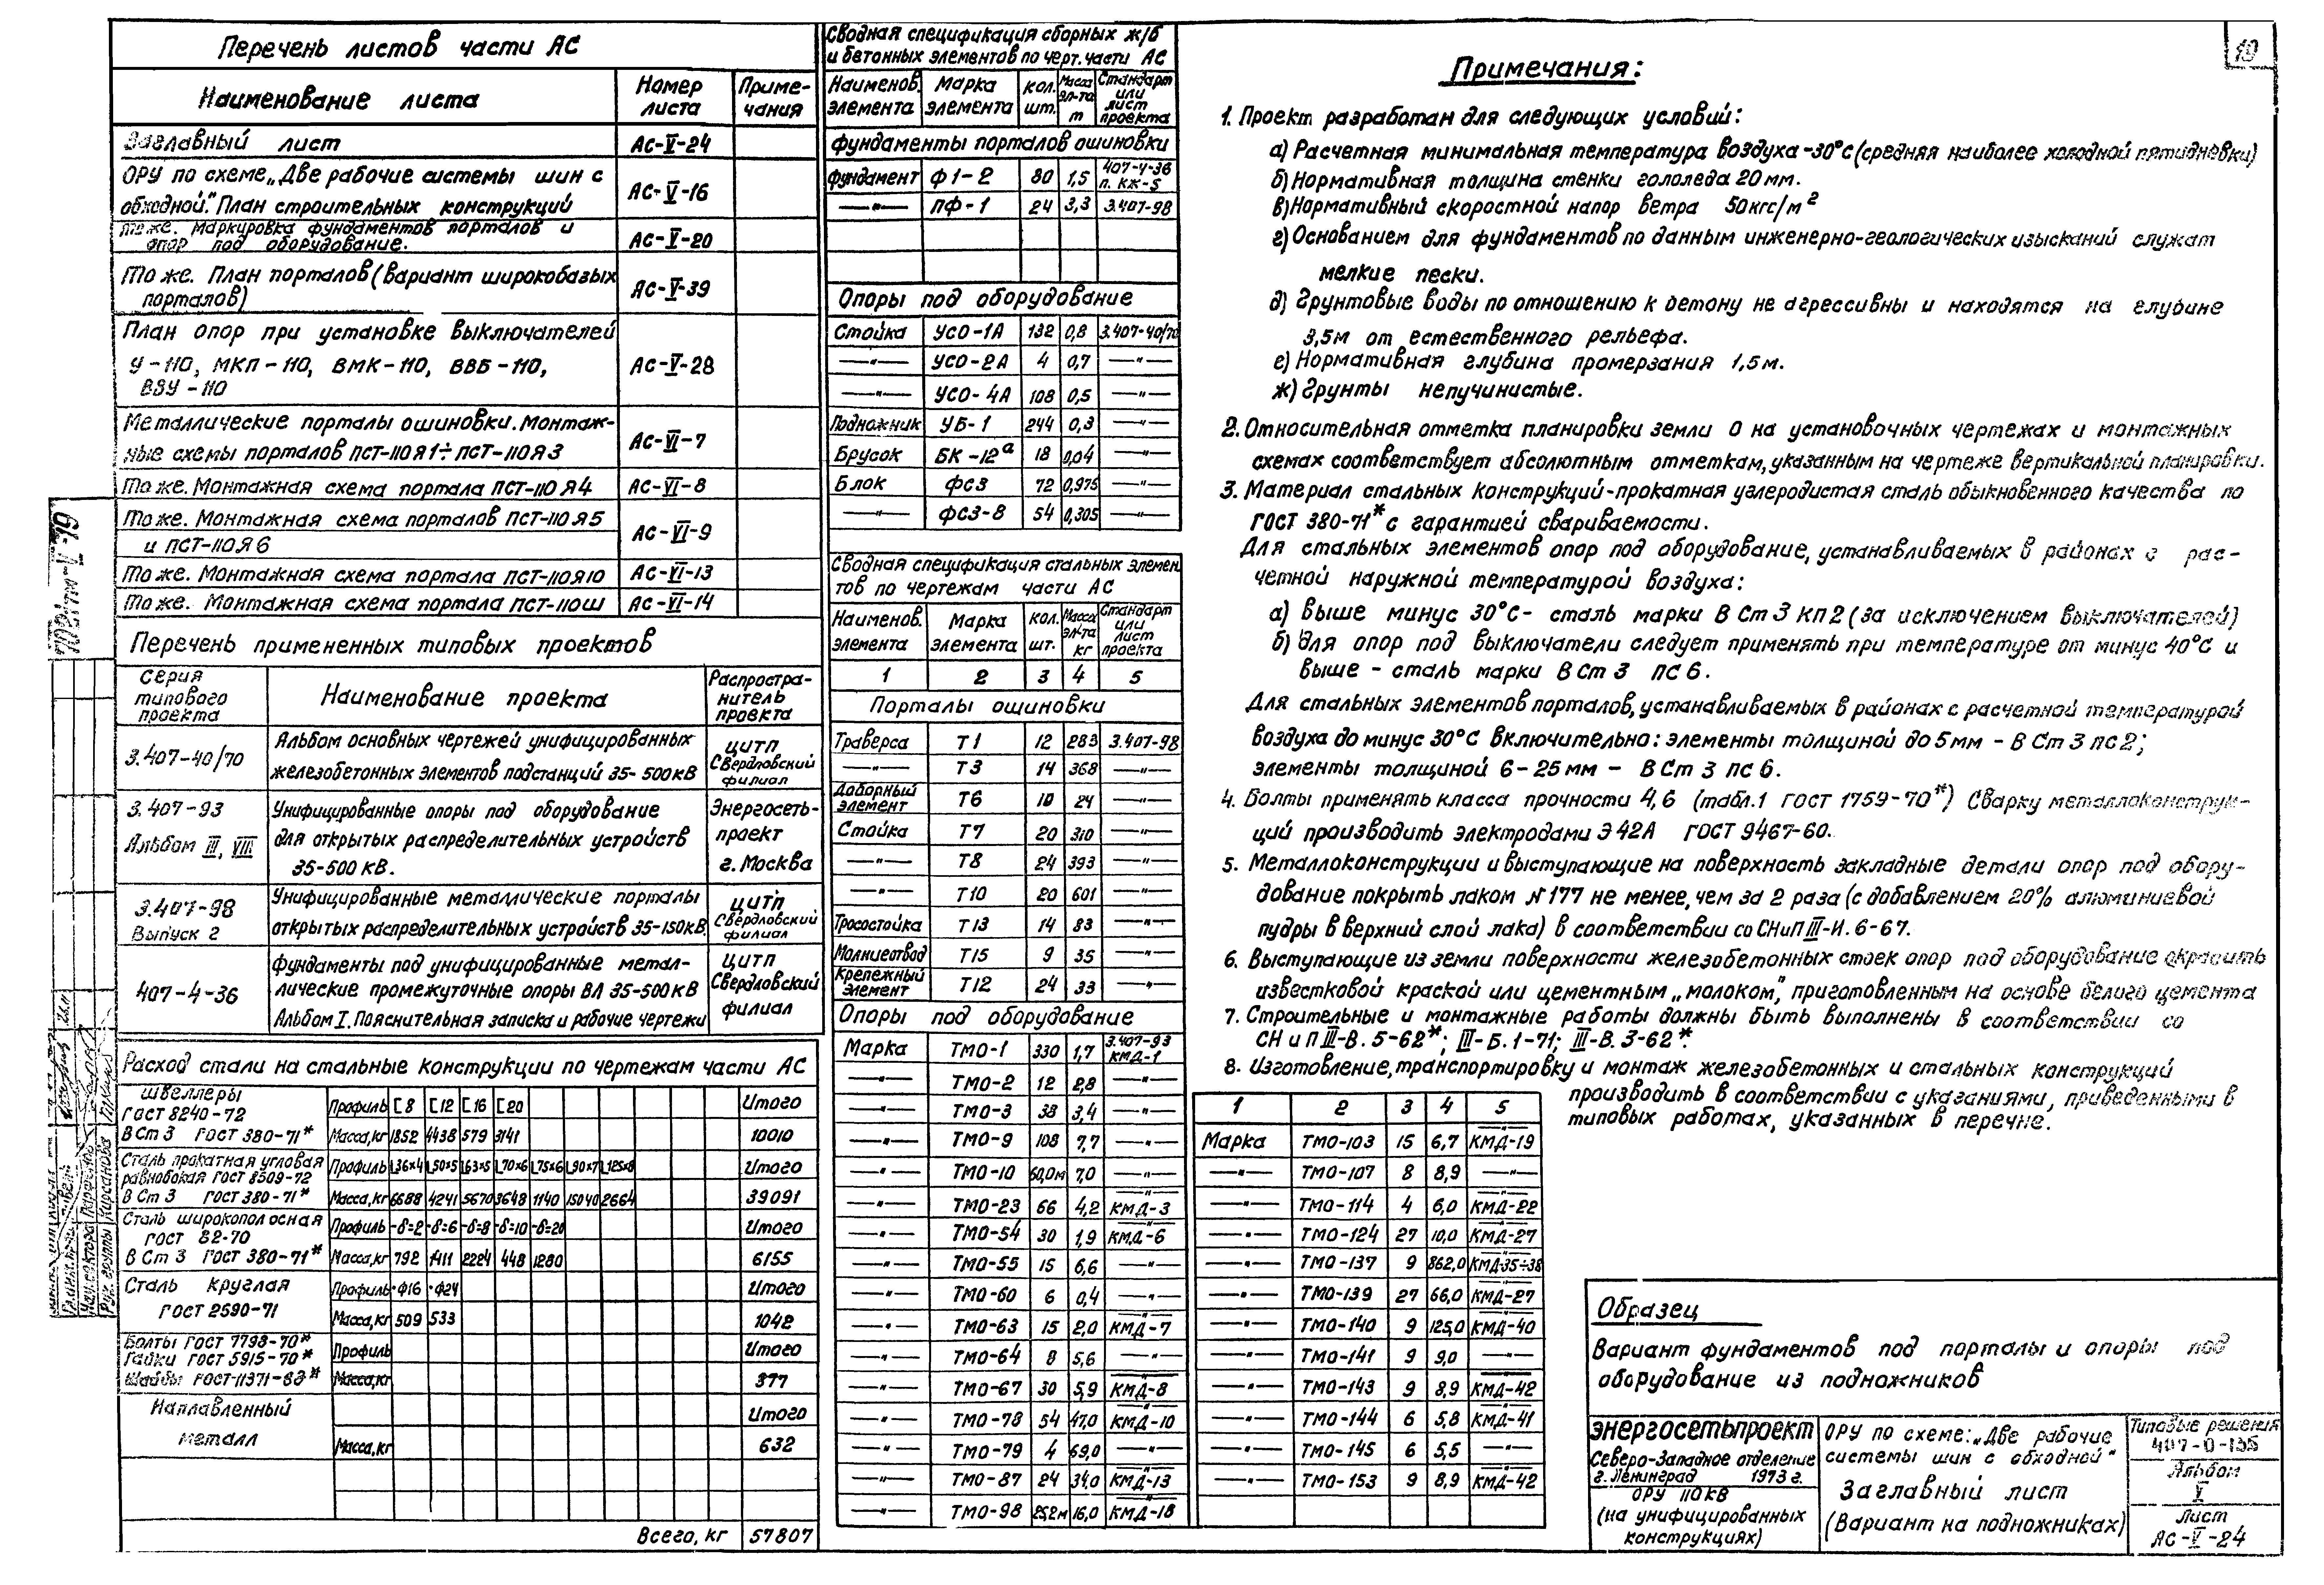 10
Перечень листов части АС
Наименование листа | Номер листа | Примечания
Заглавный лист | АС-V-24
ОРУ по схеме „Две рабочие системы шин с
обходной." План строительных конструкций | АС-V-16
То же. Маркировка фундаментов порталов и
опор под оборудование. | АС-V-20
То же. План порталов (вариант широкобазых
порталов) | АС-V-39
План опор при установке выключателей
У-110, МКП-110, ВМК-110, ВВБ-110,
ВЗУ-110 | АС-V-28
Металлические порталы ошиновки. Монтаж-
ные схемы порталов ПСТ-110Я1÷ПСТ-110Я3 | АС-VI-7
То же. Монтажная схема портала ПСТ-110Я4 | АС-VI-8
То же. Монтажная схема порталов ПСТ-110Я5
и ПСТ-110Я6 | АС-VI-9
То же. Монтажная схема портала ПСТ-110Я10 | АС-VI-13
То же. Монтажная схема портала ПСТ-110Ш | АС-VI-14
Перечень примененных типовых проектов
Серия типового проекта | Наименование проекта | Распространитель проекта
3.407-40/70 | Альбом основных чертежей унифицированных
железобетонных элементов подстанций 35-500кВ | ЦИТП Свердловский филиал
3.407-93
Альбом III, VIII | Унифицированные опоры под оборудование
для открытых распределительных устройств
35-500 кВ. | Энергосеть-проект г. Москва
3.407-98
Выпуск 2 | Унифицированные металлические порталы
открытых распределительных устройств 35-150кВ. | ЦИТП Свердловский филиал
407-4-36 | Фундаменты под унифицированные метал-
лические промежуточные опоры ВЛ 35-500кВ
Альбом I. Пояснительная записка и рабочие чертежи | ЦИТП Свердловский филиал
Расход стали на стальные конструкции по чертежам части АС
Швеллеры
ГОСТ 8240-72
ВСт3 ГОСТ 380-71*
Профиль | [8 | [12 | [16 | [20 | Итого
Масса, кг | 1852 | 4438 | 579 | 3141 | 10010
Сталь прокатная угловая
равнобокая ГОСТ 8509-72
ВСт3 ГОСТ 380-71*
Профиль | L36×4 | L50×5 | L63×5 | L70×6 | L75×6 | L90×7 | L125×8 | Итого
Масса, кг | 6688 | 4241 | 5670 | 3648 | 1140 | 15040 | 2664 | 39091
Сталь широкополосная
ГОСТ 82-70
ВСт3 ГОСТ 380-71*
Профиль | -δ=2 | -δ=6 | -δ=8 | -δ=10 | -δ=20 | Итого
Масса, кг | 792 | 1411 | 2224 | 448 | 1280 | 6155
Сталь круглая
ГОСТ 2590-71
Профиль | •Ф16 | •Ф24 | Итого
Масса, кг | 509 | 533 | 1042
Болты ГОСТ 7798-70*
Гайки ГОСТ 5915-70*
Шайбы ГОСТ 11371-68*
Профиль | Итого
Масса, кг | 877
Наплавленный
металл
Итого
Масса, кг | 632
Всего, кг | 57807
Сводная спецификация сборных ж/б
и бетонных элементов по черт. части АС
Наименов. элемента | Марка элемента | Кол. шт. | Масса эл-та т | Стандарт или лист проекта
Фундаменты порталов ошиновки
Фундамент | Ф1-2 | 80 | 1,5 | 407-4-36 л. КЖ-5
—"— | ПФ-1 | 24 | 3,3 | 3.407-98
Опоры под оборудование
Стойка | УСО-1А | 132 | 0,8 | 3.407-40/70
—"— | УСО-2А | 4 | 0,7 | —"—
—"— | УСО-4А | 108 | 0,5 | —"—
Подножник | УБ-1 | 244 | 0,3 | —"—
Брусок | БК-12а | 18 | 0,04 | —"—
Блок | ФС3 | 72 | 0,975 | —"—
—"— | ФС3-8 | 54 | 0,305 | —"—
Сводная спецификация стальных элемен-
тов по чертежам части АС
Наименов. элемента | Марка элемента | Кол. шт. | Масса эл-та кг | Стандарт или лист проекта
1 | 2 | 3 | 4 | 5
Порталы ошиновки
Траверса | Т1 | 12 | 283 | 3.407-98
—"— | Т3 | 14 | 368 | —"—
Доборный элемент | Т6 | 10 | 24 | —"—
Стойка | Т7 | 20 | 310 | —"—
—"— | Т8 | 24 | 393 | —"—
—"— | Т10 | 20 | 601 | —"—
Тросостойка | Т13 | 14 | 83 | —"—
Молниеотвод | Т15 | 9 | 35 | —"—
Крепежный элемент | Т12 | 24 | 33 | —"—
Опоры под оборудование
Марка | ТМО-1 | 330 | 1,7 | 3.407-93 КМД-1
—"— | ТМО-2 | 12 | 2,8 | —"—
—"— | ТМО-3 | 38 | 3,4 | —"—
—"— | ТМО-9 | 108 | 7,7 | —"—
—"— | ТМО-10 | 60,0м | 7,0 | —"—
—"— | ТМО-23 | 66 | 4,2 | —"— КМД-3
—"— | ТМО-54 | 30 | 1,9 | —"— КМД-6
—"— | ТМО-55 | 15 | 6,6 | —"—
—"— | ТМО-60 | 6 | 0,4 | —"—
—"— | ТМО-63 | 15 | 2,0 | —"— КМД-7
—"— | ТМО-64 | 8 | 5,6 | —"—
—"— | ТМО-67 | 30 | 5,9 | —"— КМД-8
—"— | ТМО-78 | 54 | 47,0 | —"— КМД-10
—"— | ТМО-79 | 4 | 69,0 | —"—
—"— | ТМО-87 | 24 | 34,0 | —"— КМД-13
—"— | ТМО-98 | 252м | 16,0 | —"— КМД-18
Примечания:
1. Проект разработан для следующих условий:
а) Расчетная минимальная температура воздуха -30°С (средняя наиболее холодной пятидневки)
б) Нормативная толщина стенки гололеда 20 мм.
в) Нормативный скоростной напор ветра 50 кгс/м²
г) Основанием для фундаментов по данным инженерно-геологических изысканий служат
мелкие пески.
д) Грунтовые воды по отношению к бетону не агрессивны и находятся на глубине
3,5м от естественного рельефа.
е) Нормативная глубина промерзания 1,5м.
ж) Грунты непучинистые.
2. Относительная отметка планировки земли 0 на установочных чертежах и монтажных
схемах соответствует абсолютным отметкам, указанным на чертеже вертикальной планировки.
3. Материал стальных конструкций-прокатная углеродистая сталь обыкновенного качества по
ГОСТ 380-71* с гарантией свариваемости.
Для стальных элементов опор под оборудование, устанавливаемых в районах с рас-
четной наружной температурой воздуха:
а) выше минус 30°С- сталь марки ВСт3кп2 (за исключением выключателей)
б) для опор под выключатели следует применять при температуре от минус 40°С и
выше - сталь марки ВСт3 пс6.
Для стальных элементов порталов, устанавливаемых в районах с расчетной температурой
воздуха до минус 30°С включительно: элементы толщиной до 5мм - ВСт3пс2;
элементы толщиной 6-25мм - ВСт3пс6.
4. Болты применять класса прочности 4,6 (табл.1 ГОСТ 1759-70*) Сварку металлоконструк-
ций производить электродами Э42А ГОСТ 9467-60.
5. Металлоконструкции и выступающие на поверхность закладные детали опор под обору-
дование покрыть лаком №177 не менее, чем за 2 раза (с добавлением 20% алюминиевой
пудры в верхний слой лака) в соответствии со СНиП III-И.6-67.
6. Выступающие из земли поверхности железобетонных стоек опор под оборудование окрасить
известковой краской или цементным „молоком", приготовленным на основе белого цемента
7. Строительные и монтажные работы должны быть выполнены в соответствии со
СНиП III-В.5-62*; III-Б.1-71; III-В.3-62*.
8. Изготовление, транспортировку и монтаж железобетонных и стальных конструкций
производить в соответствии с указаниями, приведенными в
типовых работах, указанных в перечне.
1 | 2 | 3 | 4 | 5
Марка | ТМО-103 | 15 | 6,7 | —"— КМД-19
—"— | ТМО-107 | 8 | 8,9 | —"—
—"— | ТМО-114 | 4 | 6,0 | —"— КМД-22
—"— | ТМО-124 | 27 | 10,0 | —"— КМД-27
—"— | ТМО-137 | 9 | 862,0 | —"— КМД-35÷38
—"— | ТМО-139 | 27 | 66,0 | —"— КМД-27
—"— | ТМО-140 | 9 | 125,0 | —"— КМД-40
—"— | ТМО-141 | 9 | 9,0 | —"—
—"— | ТМО-143 | 9 | 8,9 | —"— КМД-42
—"— | ТМО-144 | 6 | 5,8 | —"— КМД-41
—"— | ТМО-145 | 6 | 5,5 | —"—
—"— | ТМО-153 | 9 | 8,9 | —"— КМД-42
Образец
Вариант фундаментов под порталы и опоры под
оборудование из подножников
Энергосетьпроект
Северо-Западное отделение
г. Ленинград 1973 г.
ОРУ 110 кВ
(на унифицированных
конструкциях)
ОРУ по схеме: „Две рабочие
системы шин с обходной"
Заглавный лист
(Вариант на подножниках)
Типовые решения
407-0-135
Альбом
V
Лист
АС-V-24